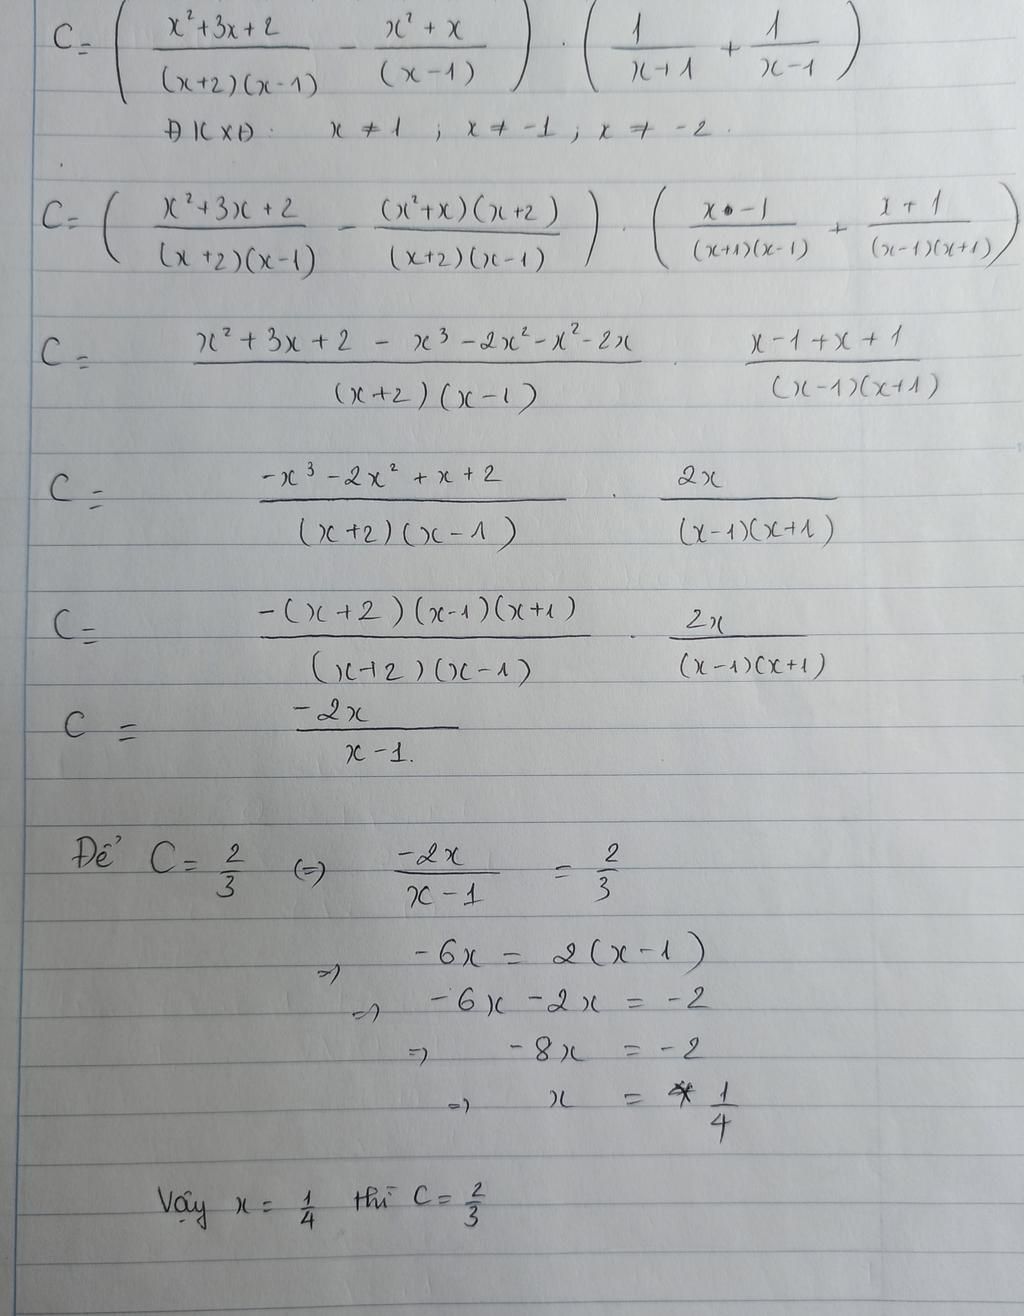 C = ( (x²+3x+2)/((x+2)(x-1)) - (x²+x)/((x-1)) ) . ( 1/(x+1) + 1/(x-1) )
ĐKXĐ. x ≠ 1 ; x ≠ -1 ; x ≠ -2.
C = ( (x²+3x+2)/((x+2)(x-1)) - ((x²+x)(x+2))/((x+2)(x-1)) ) . ( (x-1)/((x+1)(x-1)) + (x+1)/((x-1)(x+1)) )
C = (x²+3x+2 - x³-2x²-x²-2x)/((x+2)(x-1)) . (x-1+x+1)/((x-1)(x+1))
C = (-x³-2x²+x+2)/((x+2)(x-1)) . 2x/((x-1)(x+1))
C = (-(x+2)(x-1)(x+1))/((x+2)(x-1)) . 2x/((x-1)(x+1))
C = -2x/(x-1).
Để C = 2/3 (=) -2x/(x-1) = 2/3
=) -6x = 2(x-1)
=) -6x -2x = -2
=) -8x = -2
=) x = 1/4
Vậy x = 1/4 thì C = 2/3